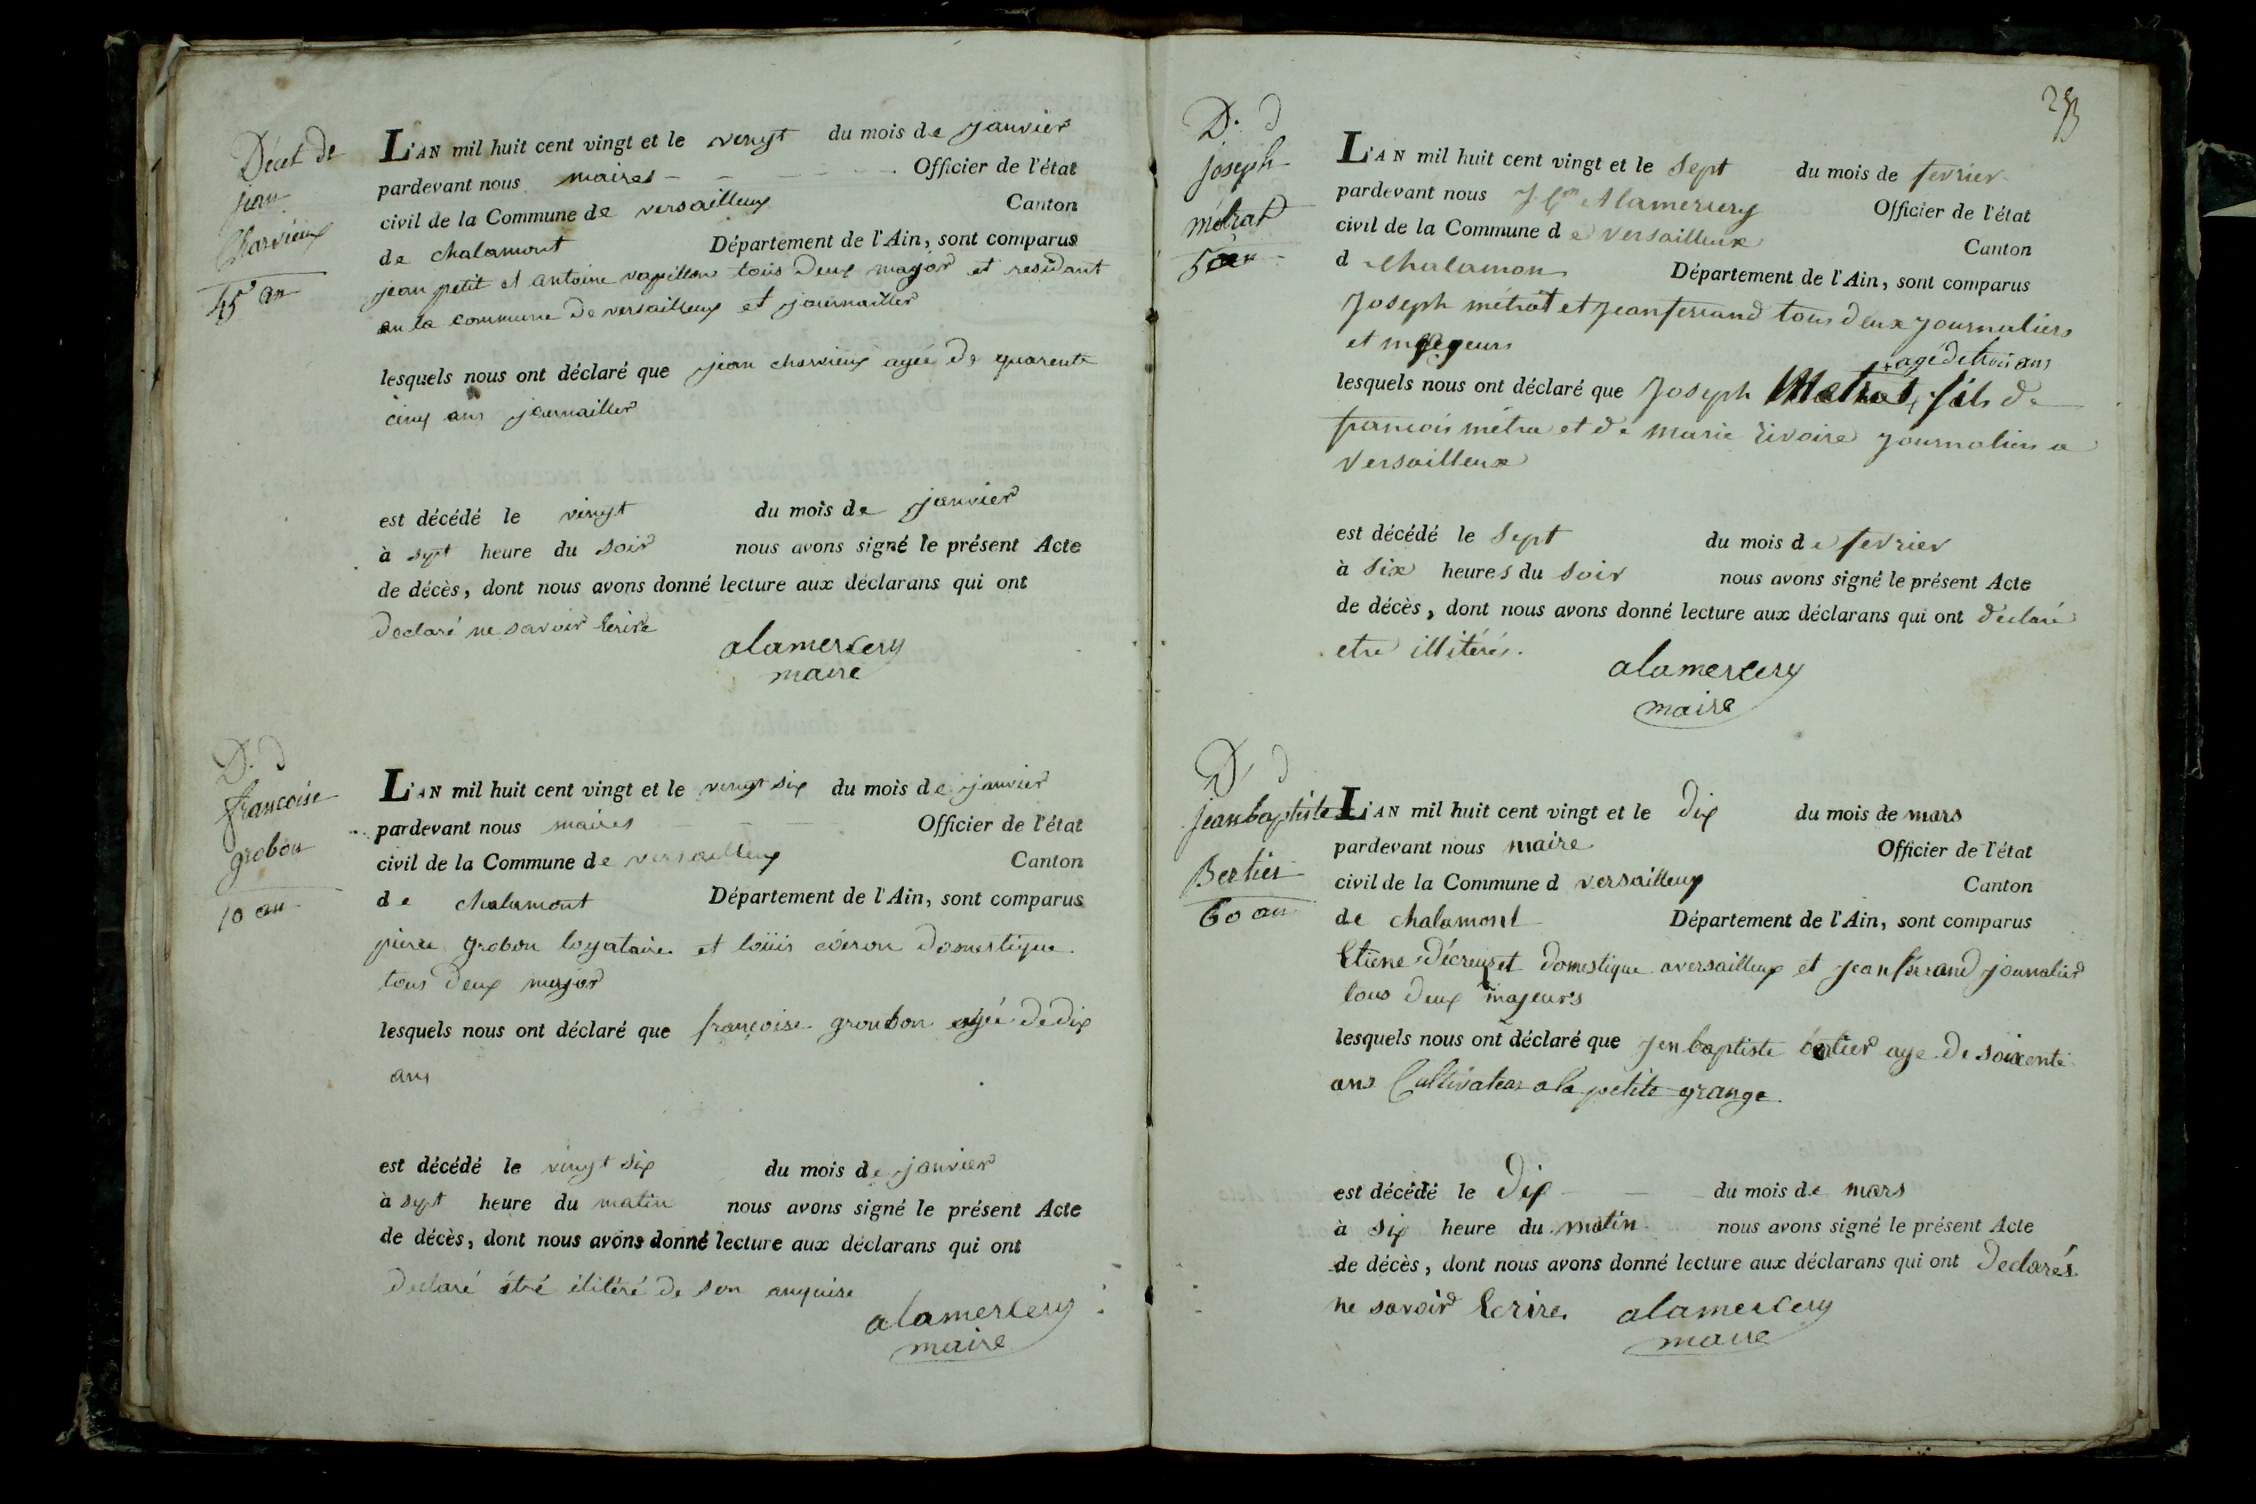 Décet de
jean
Charvieux
45 an
L'AN mil huit cent vingt et le vingt du mois de janvier
pardevant nous maires Officier de l'état
civil de la Commune de versailleux Canton
de chalamont Département de l'Ain, sont comparus
jean petit et antoine vapillon tous deux major et residant
en la commune de versailleux et journallier
lesquels nous ont déclaré que jean charvieux agée de quarente
cinq ans journailler
est décédé le vingt du mois de janvier
à sept heure du soir nous avons signé le présent Acte
de décès, dont nous avons donné lecture aux déclarans qui ont
declaré ne savoir Ecrire
alamercery
maire
D. d
francoise
grobon
10 an
L'AN mil huit cent vingt et le vingt six du mois de janvier
pardevant nous maires Officier de l'état
civil de la Commune de versailleux Canton
de chalamont Département de l'Ain, sont comparus
pierre grobon loyataire et loüis domestique
tous deux major
lesquels nous ont déclaré que françoise groubon agée de dix
ans
est décédé le vingt six du mois de janvier
à sept heure du matin nous avons signé le présent Acte
de décès, dont nous avons donné lecture aux déclarans qui ont
declaré étré élitéré de son anquise
alamercery
maire
D. d
joseph
métrat
L'AN mil huit cent vingt et le sept du mois de fevrier
pardevant nous Alamercery Officier de l'état
civil de la Commune de versailleux Canton
d chalamon Département de l'Ain, sont comparus
Joseph métrat et jean ferrand tous deux journaliers
et mageurs
agé de trois ans
lesquels nous ont déclaré que Joseph Metrat, fils de
francois métra et de marie rivoire journaliers a
versailleux
est décédé le sept du mois de fevrier
à six heures du soir nous avons signé le présent Acte
de décès, dont nous avons donné lecture aux déclarans qui ont déclaré
etre illitérés.
alamercery
maire
D. d
jean baptiste
Bertier
60 an
L'AN mil huit cent vingt et le dix du mois de mars
pardevant nous maire Officier de l'état
civil de la Commune d versailleux Canton
de chalamont Département de l'Ain, sont comparus
Etiene décreuset domestique aversailleux et jean ferrand journalier
tous deux majeurs
lesquels nous ont déclaré que jen baptiste bertier age de soixente
ans Cultivateur a la petite grange.
est décédé le dix du mois de mars
à six heure du matin nous avons signé le présent Acte
de décès, dont nous avons donné lecture aux déclarans qui ont declarés
ne savoir Ecrire. alamercery
maire